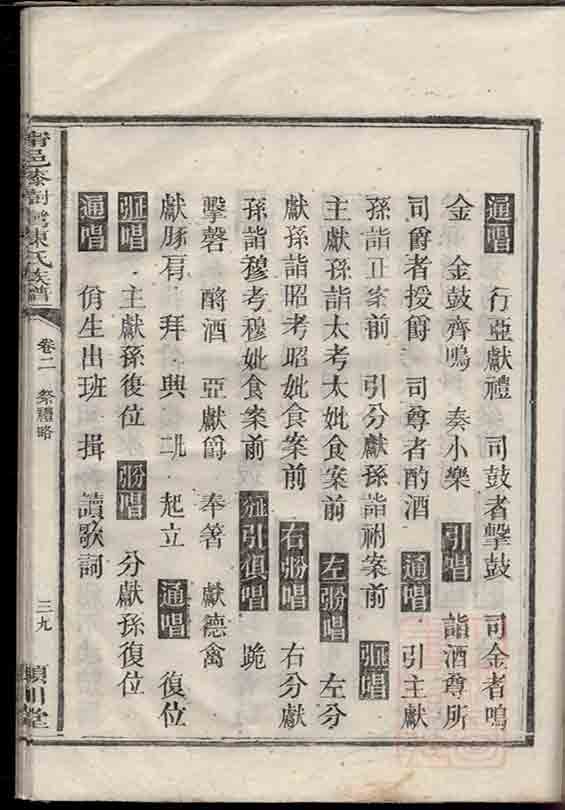 通唱 行亞獻禮 司鼓者擊鼓 司金者鳴
金 金鼓齊鳴 奏小樂 引唱 詣酒尊所
司爵者授爵 司尊者酌酒 通唱 引主獻
孫詣正案前 引分獻孫詣祔案前 唱
主獻孫詣太考太妣食案前 左唱 左分
獻孫詣昭考昭妣食案前 右唱 右分獻
孫詣穆考穆妣食案前 引俱唱 跪
擊磬 酹酒 亞獻爵 奉箸 獻德禽
獻豚肩 拜 興 起立 通唱 復位
唱 主獻孫復位 唱 分獻孫復位
通唱 佾生出班 揖 讀歌詞
邑漆樹陳氏族譜
卷二 祭禮略
三九
潁川堂